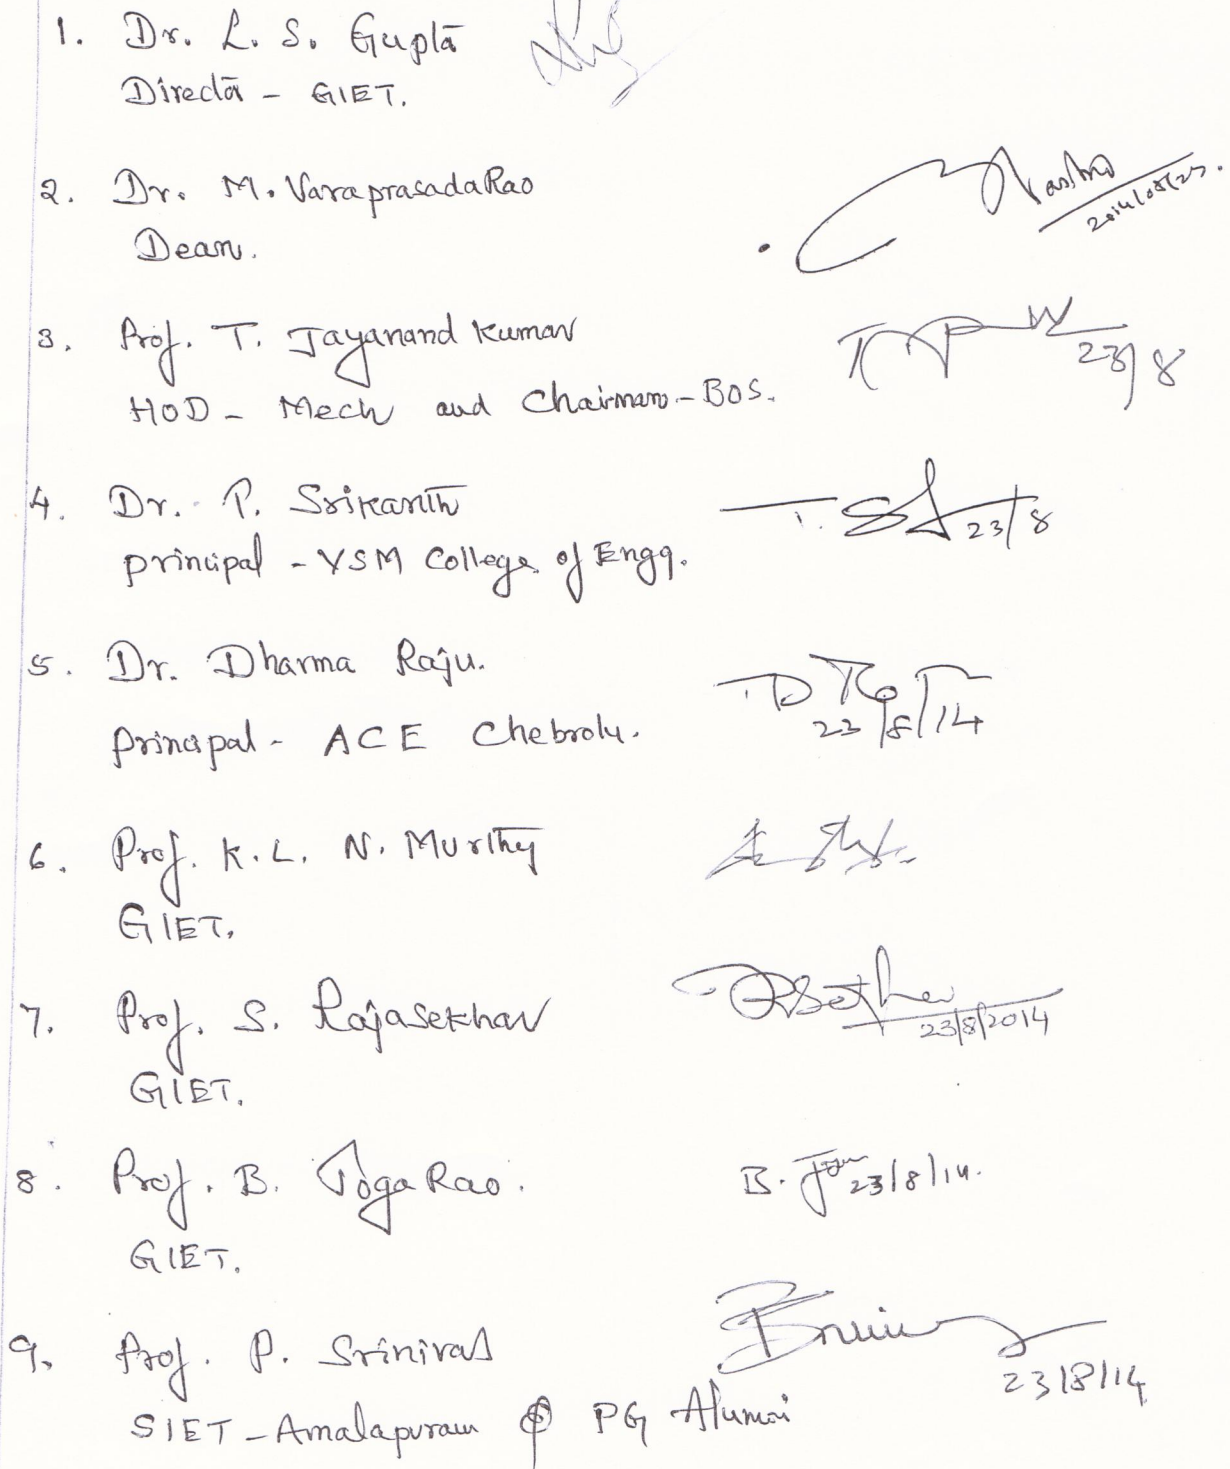 1. Dr. L. S. Gupta
Director - GIET.
2. Dr. M. VaraprasadaRao
Dean.
2014/08/23.
3. Prof. T. Jayanand Kumar
HOD - Mech and Chairman - BOS.
23/8
4. Dr. P. Srikanth
23/8
principal - VSM College of Engg.
5. Dr. Dharma Raju.
23/8/14
principal - ACE Chebrolu.
6. Prof. K. L. N. Murthy
GIET.
7. Prof. S. Rajasekhar
23/8/2014
GIET.
8. Prof. B. Joga Rao.
B. 23/8/14.
GIET.
9. Prof. P. Srinivas
23/8/14
SIET - Amalapuram PG Alumni